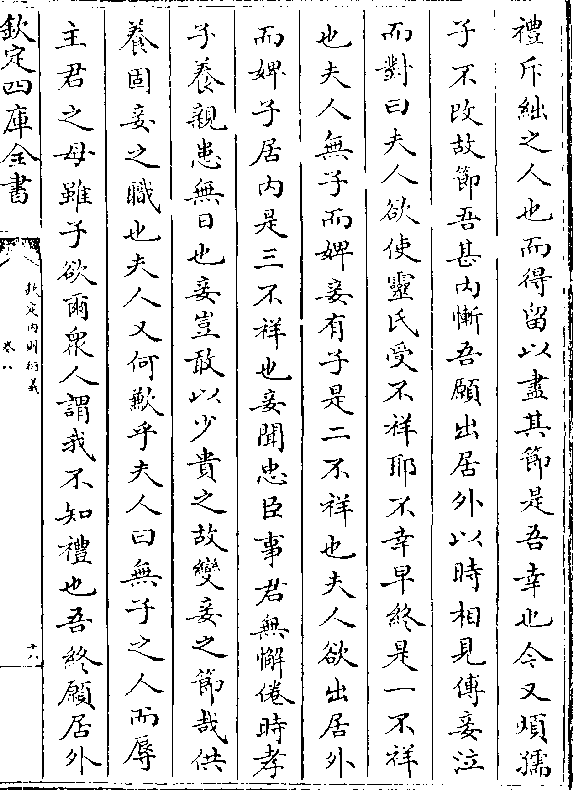 禮斥絀之人也而得留以盡其節是吾幸也今又煩孺
子不改故節吾甚內慚吾願出居外以時相見傅妾泣
而對曰夫人欲使靈氏受不祥耶不幸早終是一不祥
也夫人無子而婢妾有子是二不祥也夫人欲出居外
而婢子居內是三不祥也妾聞忠臣事君無懈倦時孝
子養親患無日也妾豈敢以少貴之故變妾之節哉供
養固妾之職也夫人又何歉乎夫人曰無子之人而辱
主君之母雖子欲爾衆人謂我不知禮也吾終願居外
欽定四庫全書
欽定內則衍義
卷八
十八